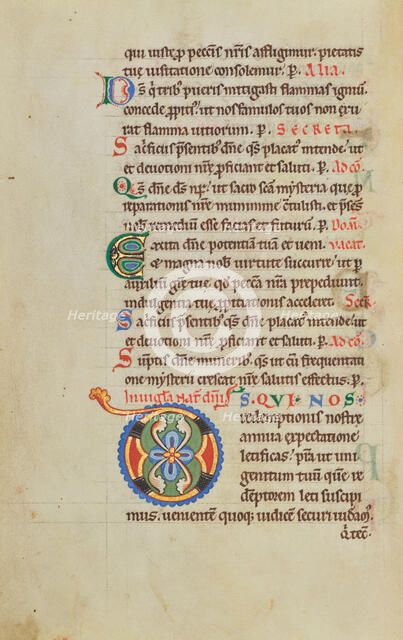 qui iuste p peccatis nr̄is affligimur. pietatis
tue uisitatione consolemur. p. Alia.
DS̄ q̄ trib; pueris mitigasti flammas igniū.
concede ꝓpiti᷒. ut nos famulos tuos non exu
rat flamma uitiorum. p. SECRETA.
Sac̄ficiis p̄sentib; dn̄e q̄s placat᷒ intende. ut
et deuotioni nr̄e ꝓficiant et saluti. p. Ad cō.
Q̄s dn̄e ds̄ nr̄. ut sac̄o sc̄a mysteria que ꝓ
reparationis nr̄e munimine c̄tulisti. et p̄sens
nob̄ remedium esse facias et futurū. p. Dom̄.
Excita dn̄e potentiā tuā et ueni. Uacat.
et magna nob̄ uirtute succurre. ut p
auxiliū gr̄e tue. qd̄ pecc̄a nr̄a prepediunt.
indulgentia tue ꝓpitiationis acceleret. Secr̄.
Sac̄ficiis p̄sentib; q̄s dn̄e placat᷒ intende. ut
et deuotioni nr̄e ꝓficiant et saluti. p. Ad cō.
Sūptis dn̄e munerib; q̄s. ut cū frequentati
one mysterii crescat nr̄e salutis effectus. p.
In uigl̄a Nat̄ dn̄i
DS. QUI NOS
redēptionis nostre
annua expectatione
letificas. p̄sta ut uni
genitum tuū quem re
dēptorem leti suscipi
mus. uenientē quoq; iudicē securi uideam᷒.
Heritage
Heritage
Heritage
Heritage
Heritage
Heritage